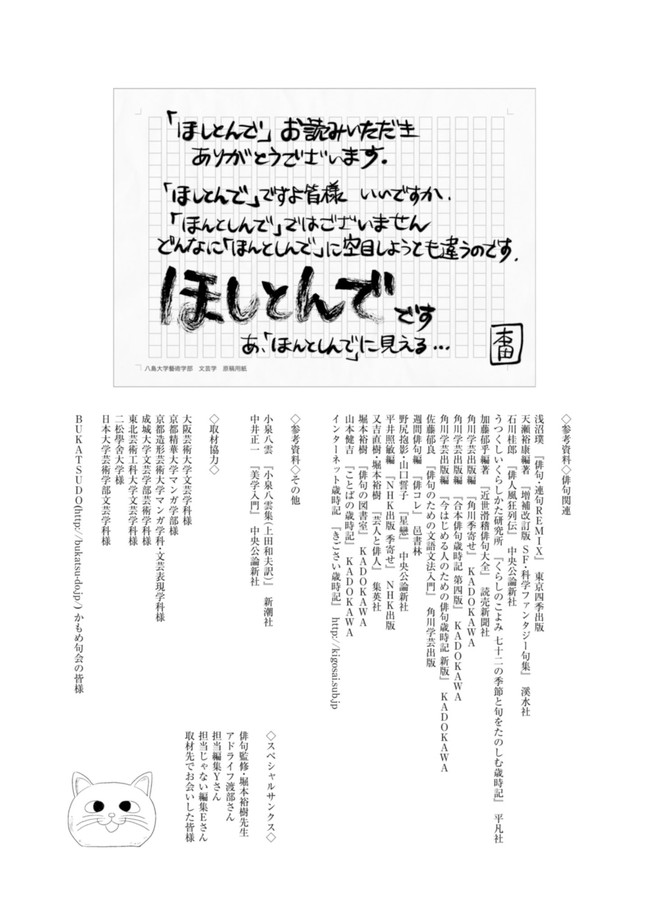 「ほしとんで」お読みいただき
ありがとうございます。
「ほしとんで」ですよ皆様 いいですか.
「ほんとしんで」ではございません
どんなに「ほんとしんで」に空目しようとも違うのです.
ほしとんでです
あ、「ほんとしんで」に見える…
本田
八島大学藝術学部 文芸学 原稿用紙
◇参考資料◇俳句関連
浅沼璞 『俳句・連句REMIX』 東京四季出版
天瀬裕康編著 『増補改訂版 SF・科学ファンタジー句集』 渓水社
石川桂郎 『俳人風狂列伝』 中央公論新社
うつくしいくらしかた研究所 『くらしのこよみ 七十二の季節と旬をたのしむ歳時記』 平凡社
加藤郁乎編著 『近世滑稽俳句大全』 読売新聞社
角川学芸出版編 『角川季寄せ』 KADOKAWA
角川学芸出版編 『合本俳句歳時記 第四版』 KADOKAWA
角川学芸出版編 『今はじめる人のための俳句歳時記 新版』 KADOKAWA
佐藤郁良 『俳句のための文語文法入門』 角川学芸出版
週間俳句編 『俳コレ』 邑書林
野尻抱影・山口誓子 『星戀』 中央公論新社
平井照敏編 『NHK出版 季寄せ』 NHK出版
又吉直樹・堀本裕樹 『芸人と俳人』 集英社
堀本裕樹 『俳句の図書室』 KADOKAWA
山本健吉 『ことばの歳時記』 KADOKAWA
インターネット歳時記 『きごさい歳時記』 http://kigosai.sub.jp
◇参考資料◇その他
小泉八雲 『小泉八雲集(上田和夫訳)』 新潮社
中井正一 『美学入門』 中央公論新社
◇取材協力◇
大阪芸術大学文芸学科様
京都精華大学マンガ学部様
京都造形芸術大学マンガ学科・文芸表現学科様
成城大学文芸学部芸術学科様
東北芸術工科大学文芸学科様
二松學舎大学様
日本大学芸術学部文芸学科様
BUKATSUDO(http://bukatsu-do.jp/) かもめ句会の皆様
◇スペシャルサンクス◇
俳句監修・堀本裕樹先生
アドライフ渡部さん
担当編集Yさん
担当じゃない編集Eさん
取材先でお会いした皆様